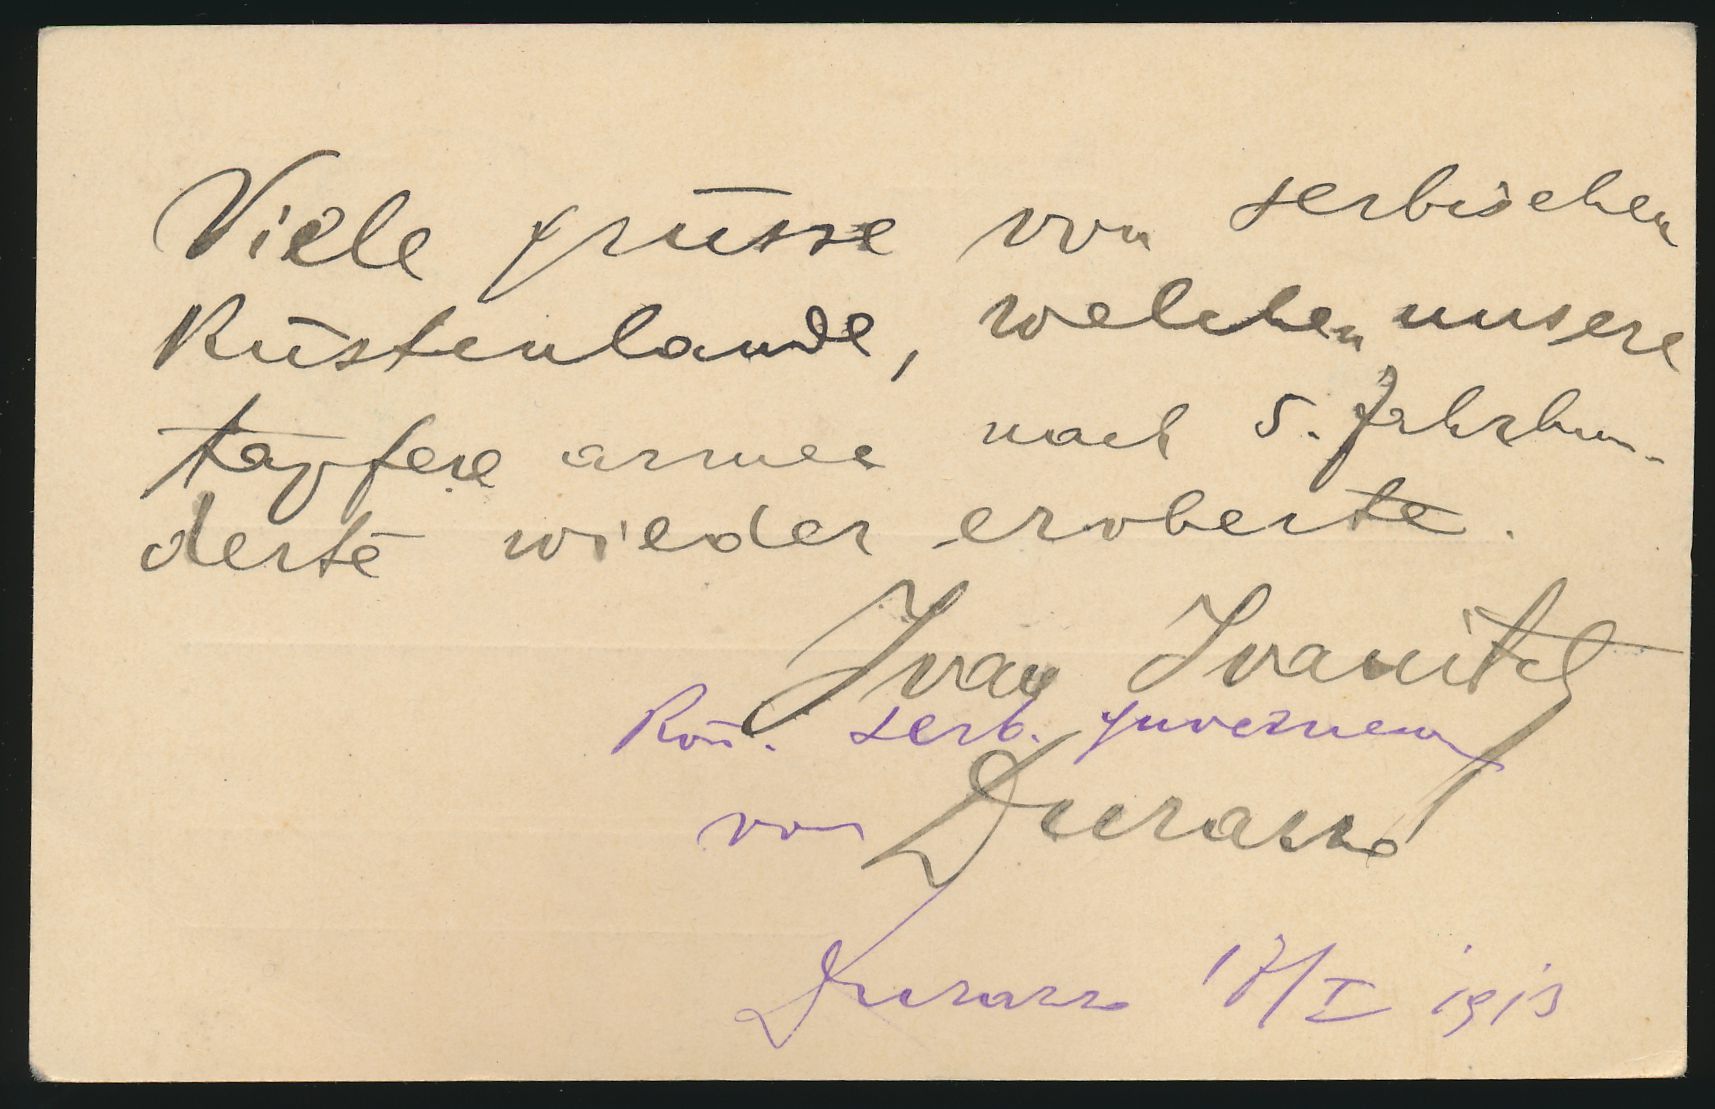 Viele grüsse von serbischen
Küstenlande, welchen unsere
tapfere armee nach 5. Jahrhun-
derte wieder eroberte.
Ivan Ivanitch
Kön. serb. guverneur
von Durazzo
Durazzo 17/I 1913